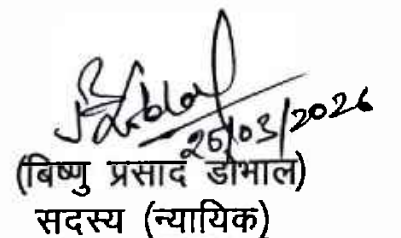 25/03/2026
(बिष्णु प्रसाद डोभाल)
सदस्य (न्यायिक)